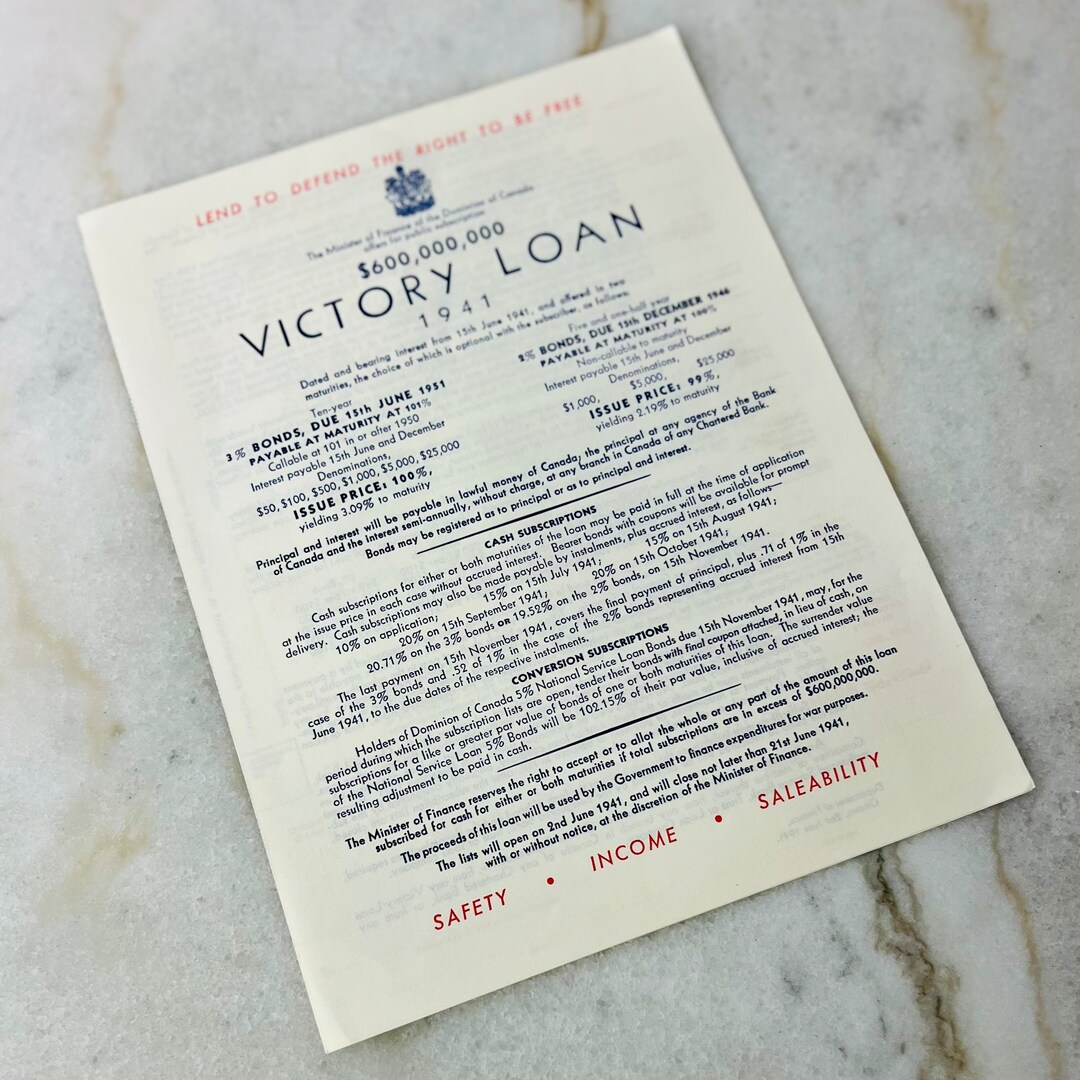 LEND TO DEFEND THE RIGHT TO BE FREE
The Minister of Finance of the Dominion of Canada
offers for public subscription
$600,000,000
VICTORY LOAN
1941
Dated and bearing interest from 15th June 1941, and offered in two
maturities, the choice of which is optional with the subscriber, as follows:
Ten-year
3% BONDS, DUE 15th JUNE 1951
PAYABLE AT MATURITY AT 101%
Callable at 101 in or after 1950
Interest payable 15th June and December
Denominations,
$50, $100, $500, $1,000, $5,000, $25,000
ISSUE PRICE: 100%,
yielding 3.09% to maturity
Five and one-half year
2% BONDS, DUE 15th DECEMBER 1946
PAYABLE AT MATURITY AT 100%
Non-callable to maturity
Interest payable 15th June and December
Denominations,
$1,000, $5,000, $25,000
ISSUE PRICE: 99%,
yielding 2.19% to maturity
Principal and interest will be payable in lawful money of Canada; the principal at any agency of the Bank
of Canada and the interest semi-annually, without charge, at any branch in Canada of any Chartered Bank.
Bonds may be registered as to principal or as to principal and interest.
CASH SUBSCRIPTIONS
Cash subscriptions for either or both maturities of the loan may be paid in full at the time of application
at the issue price in each case without accrued interest. Bearer bonds with coupons will be available for prompt
delivery. Cash subscriptions may also be made payable by instalments, plus accrued interest, as follows—
10% on application; 15% on 15th July 1941; 15% on 15th August 1941;
20% on 15th September 1941; 20% on 15th October 1941;
20.71% on the 3% bonds or 19.52% on the 2% bonds, on 15th November 1941.
The last payment on 15th November 1941, covers the final payment of principal, plus .71 of 1% in the
case of the 3% bonds and .52 of 1% in the case of the 2% bonds representing accrued interest from 15th
June 1941, to the due dates of the respective instalments.
CONVERSION SUBSCRIPTIONS
Holders of Dominion of Canada 5% National Service Loan Bonds due 15th November 1941, may, for the
period during which the subscription lists are open, tender their bonds with final coupon attached, in lieu of cash, on
subscriptions for a like or greater par value of bonds of one or both maturities of this loan. The surrender value
of the National Service Loan 5% Bonds will be 102.15% of their par value, inclusive of accrued interest; the
resulting adjustment to be paid in cash.
The Minister of Finance reserves the right to accept or to allot the whole or any part of the amount of this loan
subscribed for cash for either or both maturities if total subscriptions are in excess of $600,000,000.
The proceeds of this loan will be used by the Government to finance expenditures for war purposes.
The lists will open on 2nd June 1941, and will close not later than 21st June 1941,
with or without notice, at the discretion of the Minister of Finance.
SAFETY • INCOME • SALEABILITY